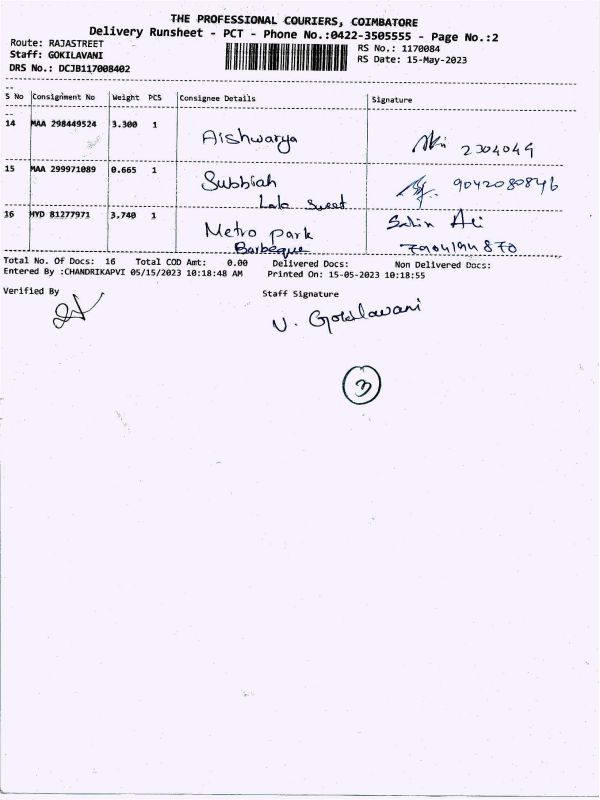 THE PROFESSIONAL COURIERS, COIMBATORE
Delivery Runsheet - PCT - Phone No.:0422-3505555 - Page No.:2
Route: RAJASTREET
Staff: GOKILAVANI
DRS No.: DCJB117008402
RS No.: 1170084
RS Date: 15-May-2023
S No Consignment No Weight PCS Consignee Details Signature
14 MAA 298449524 3.300 1 Aishwarya 2304049
15 MAA 299971089 0.665 1 Subbiah 9042080846
Lala Sweet
16 HYD 81277971 3.740 1 Metro park Salin Ali
Barbeque 7904194870
Total No. Of Docs: 16 Total COD Amt: 0.00 Delivered Docs: Non Delivered Docs:
Entered By :CHANDRIKAPVI 05/15/2023 10:18:48 AM Printed On: 15-05-2023 10:18:55
Verified By Staff Signature
V. Gokilavani
3